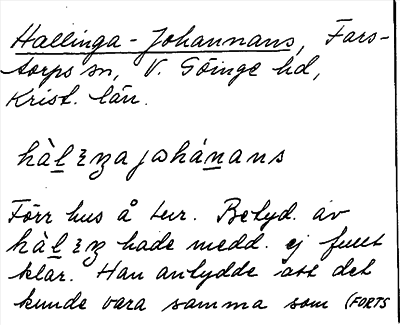 Hallinga-Johannans, Fars-
torps sn, V. Göinge hd,
Krist. län.
hàlɛŋa jɷhánans
Förr hus å ter. Betyd. av
hàlɛŋ hade medd. ej fullt
klar. Han antydde att det
kunde vara samma som (FORTS